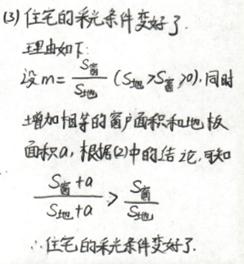 (3) 住宅的采光条件变好了.
理由如下:
设 m = S窗/S地 (S地>S窗>0). 同时
增加相等的窗户面积和地板
面积a, 根据(2)中的结论, 可知
(S窗+a)/(S地+a) > S窗/S地
∴住宅的采光条件变好了.